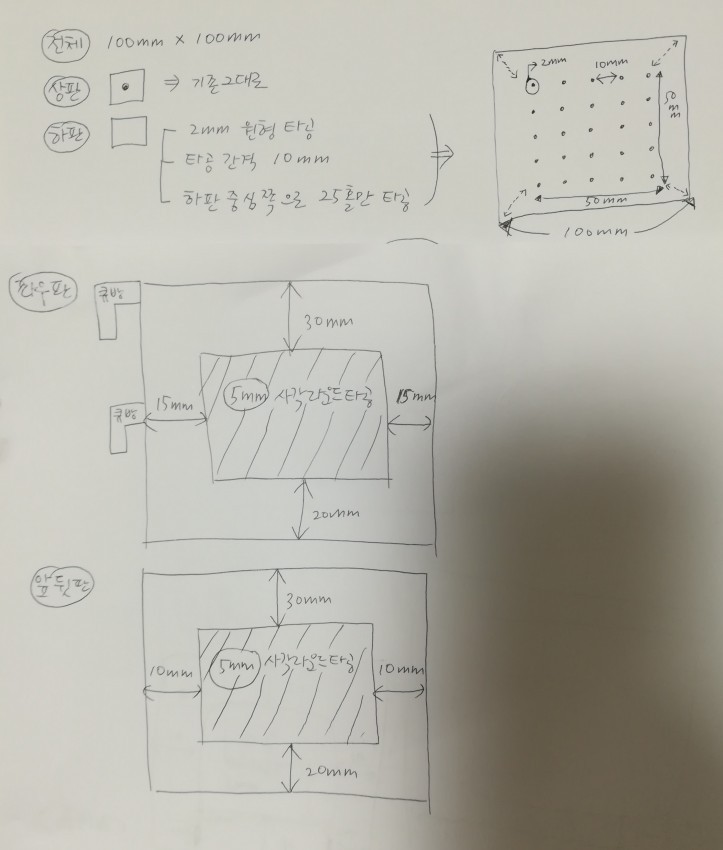 전체 100mm × 100mm
상판 ⇒ 기존그대로
하판
2mm 원형 타공
타공 간격 10mm
하판 중심쪽으로 25홀만 타공
⇒
2mm 10mm
50mm
50mm
100mm
좌우판
쿡방
30mm
5mm 사각라운드타공
15mm 15mm
쿡방
20mm
앞뒷판
30mm
5mm 사각라운드타공
10mm 10mm
20mm